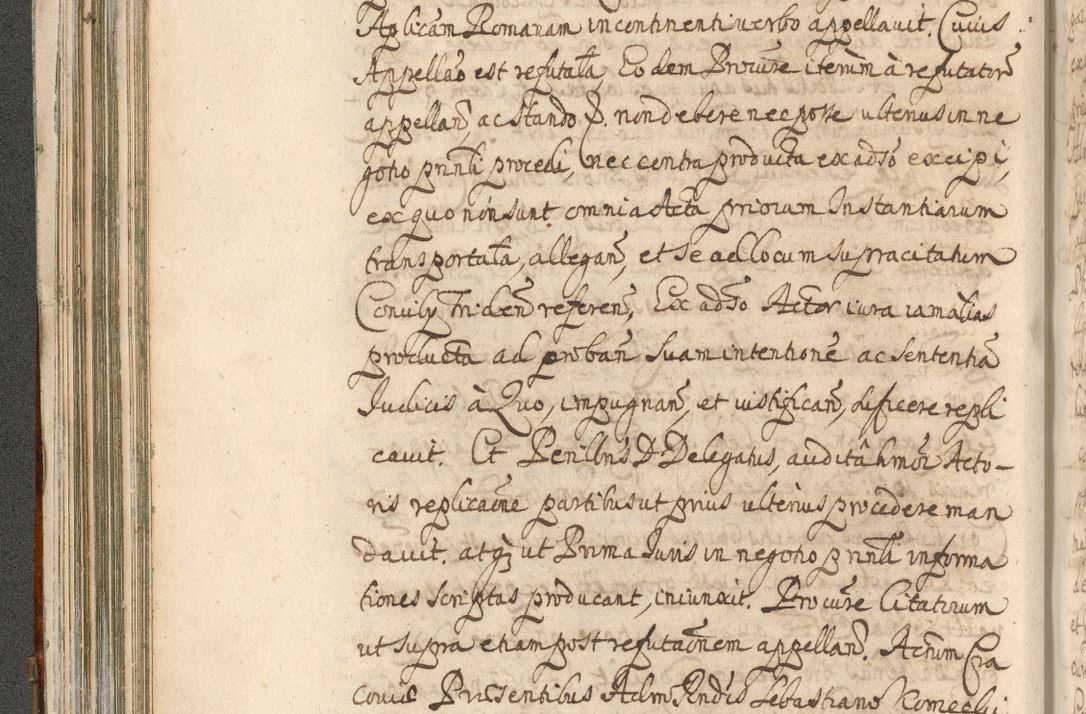 Aplicam Romanam in continenti verbo appellavit. Cuius
Appellao est refutata, Eodem Procure iterum à refutatore
appellan, ac stando P. non debere nec posse ulterius in ne
gotio prnli procedi, nec contra producta ex adso excipi,
ex quo non sunt omnia Acta priorum Instantiarum
transportata, allegan, et se ad locum supracitatum
Concily Triden referen, Ex adso Actor iura iam alias
producta ad proban suam intentione ac sententia
Iudicis à Quo, impugnan, et iustifican, dificere repli
cavit. Et Perillris D. Delegatus, audita hmoi Acto-
ris replicaone partibus ut prius ulterius procedere man
davit. atq ut Prima Iuris in negotio prnli informa
tiones scriptas producant, iniunxit. Procure Citatorum
ut supra etiam post refutaonem appellan. Actum Cra
coviæ Præsentibus Adm Rndis Sebastiano Komecki